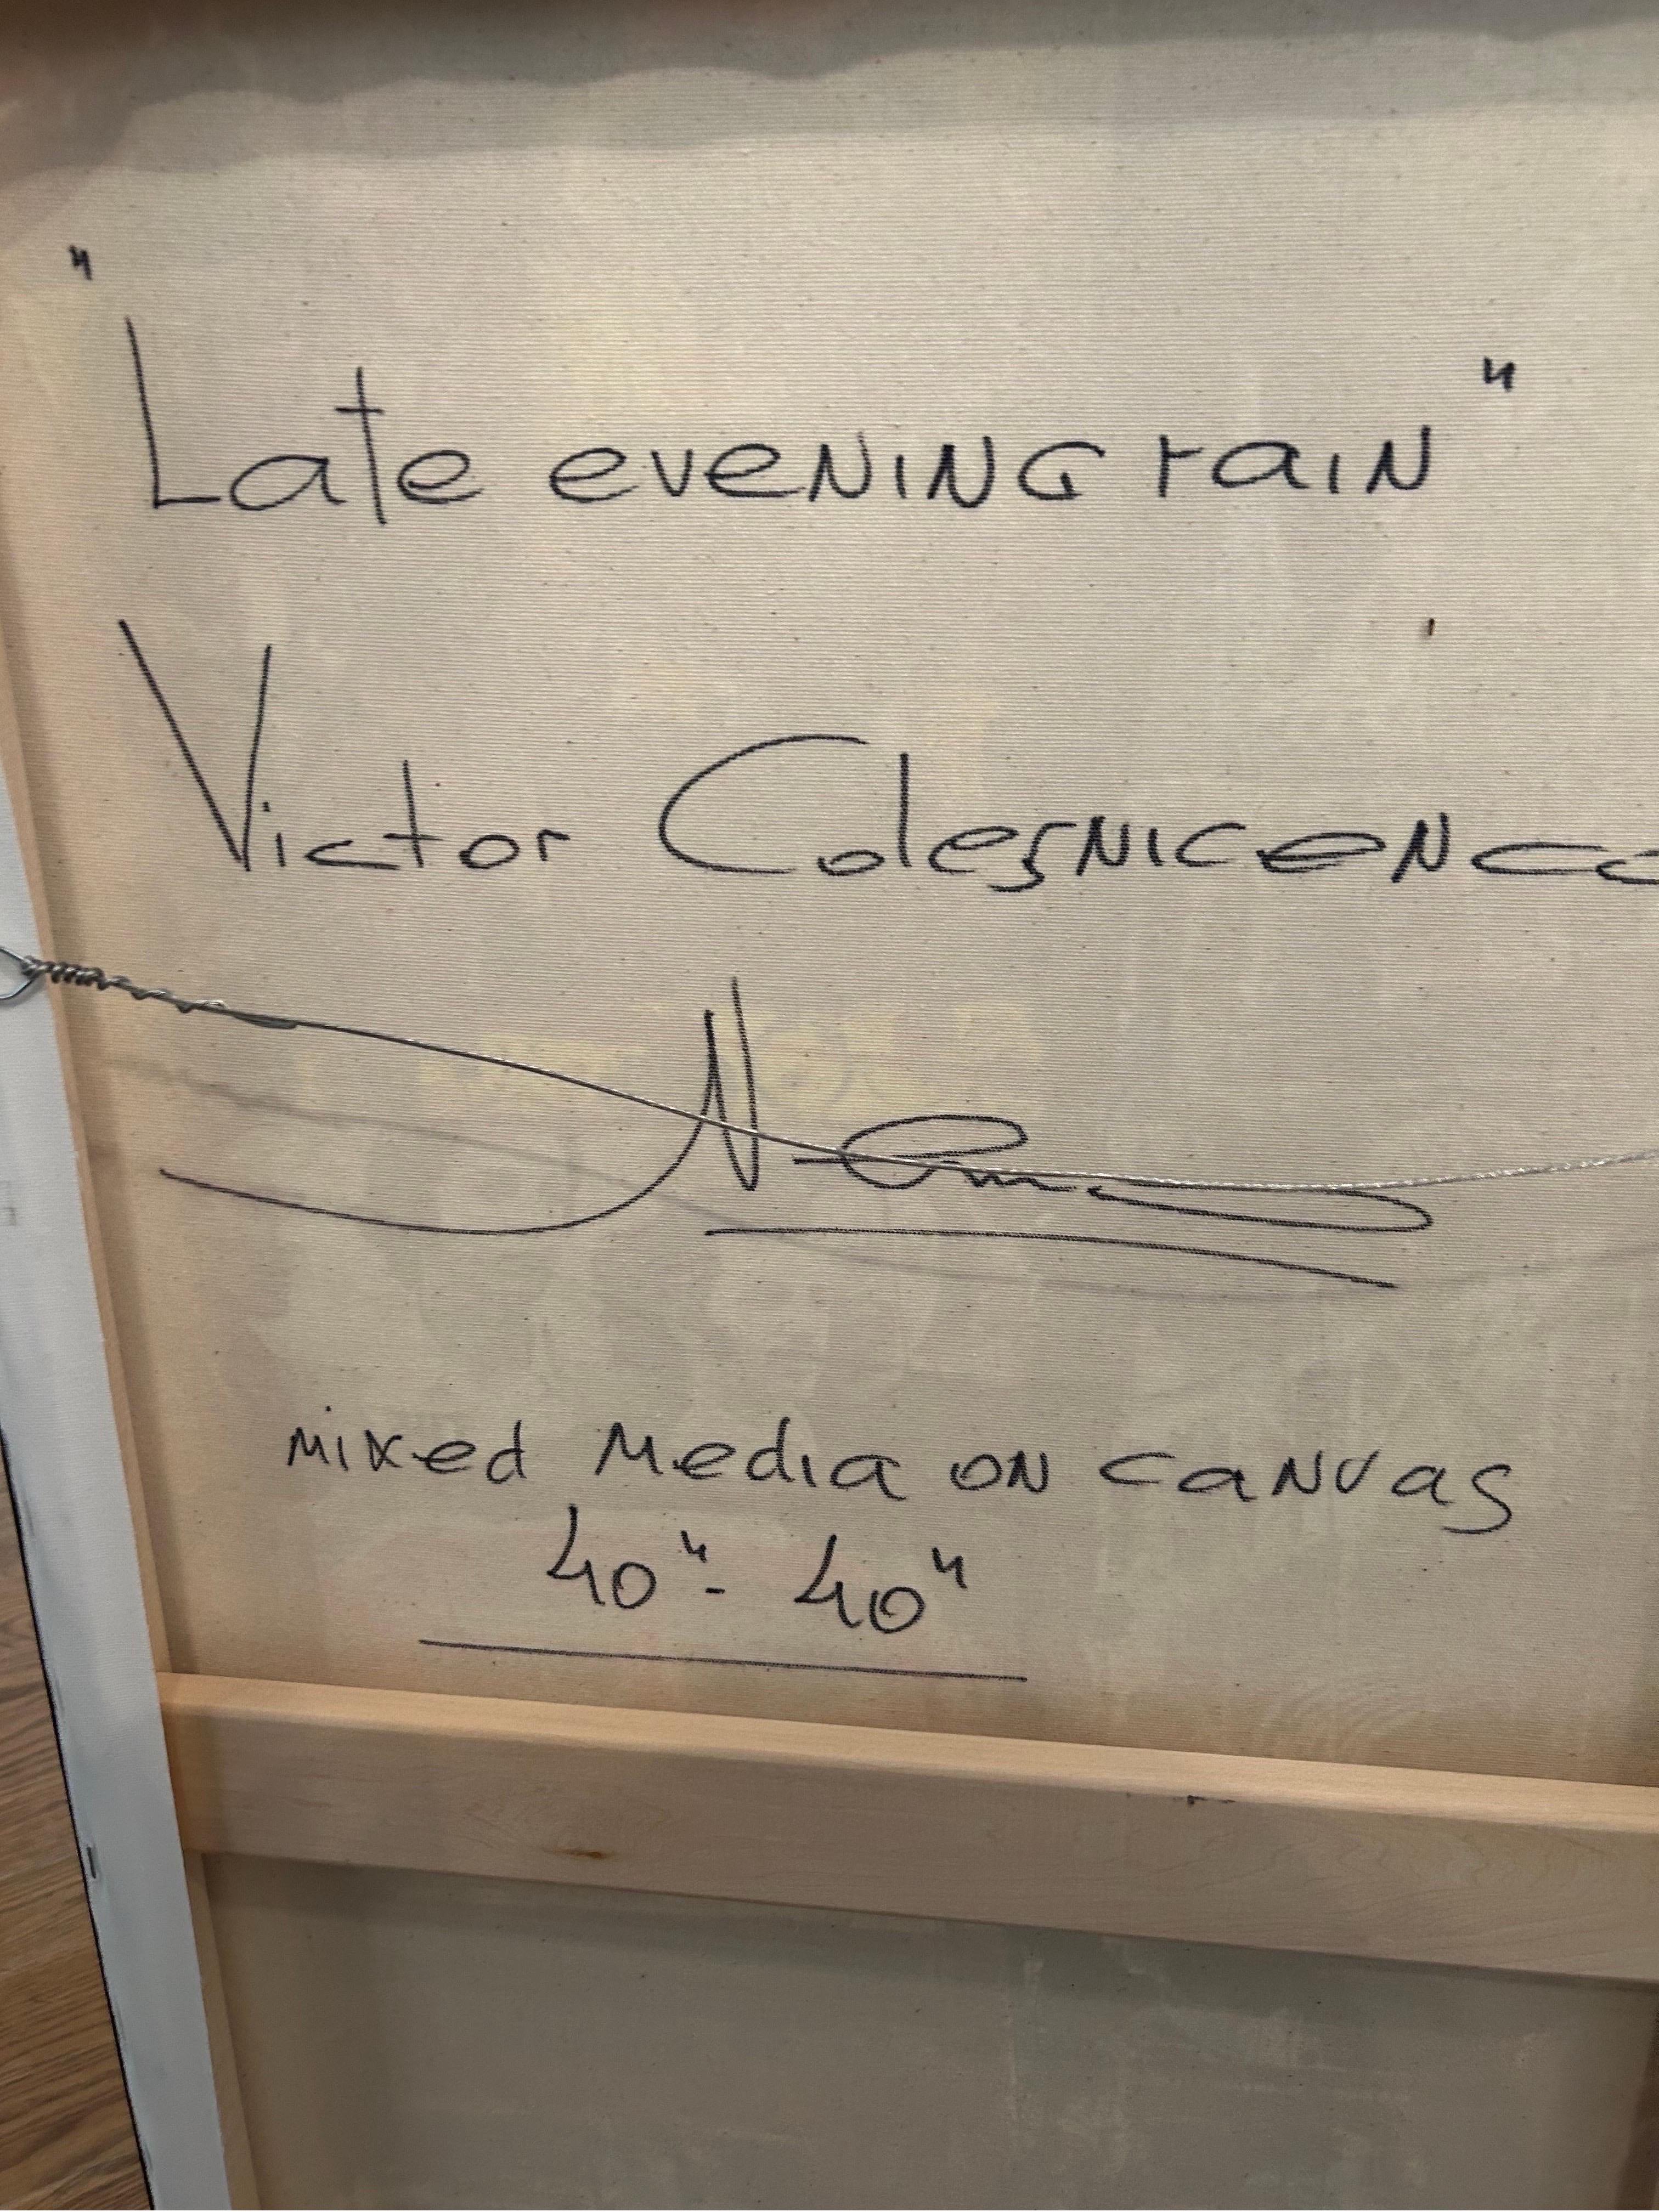 "Late evening rain"
Victor Colesnicenco
mixed media on canvas
40"- 40"